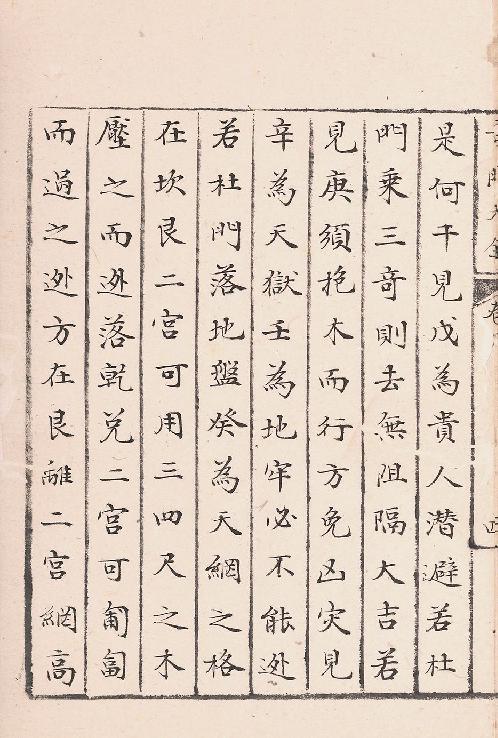 是何干見戊為貴人潜避若杜
門乘三奇則去無阻隔大吉若
見庚須抱木而行方免凶灾見
辛為天獄壬為地牢必不能迯
若杜門落地盤癸為天網之格
在坎艮二宮可用三四尺之木
壓之而迯落乾兌二宮可匍匐
而過之迯方在艮離二宮網高